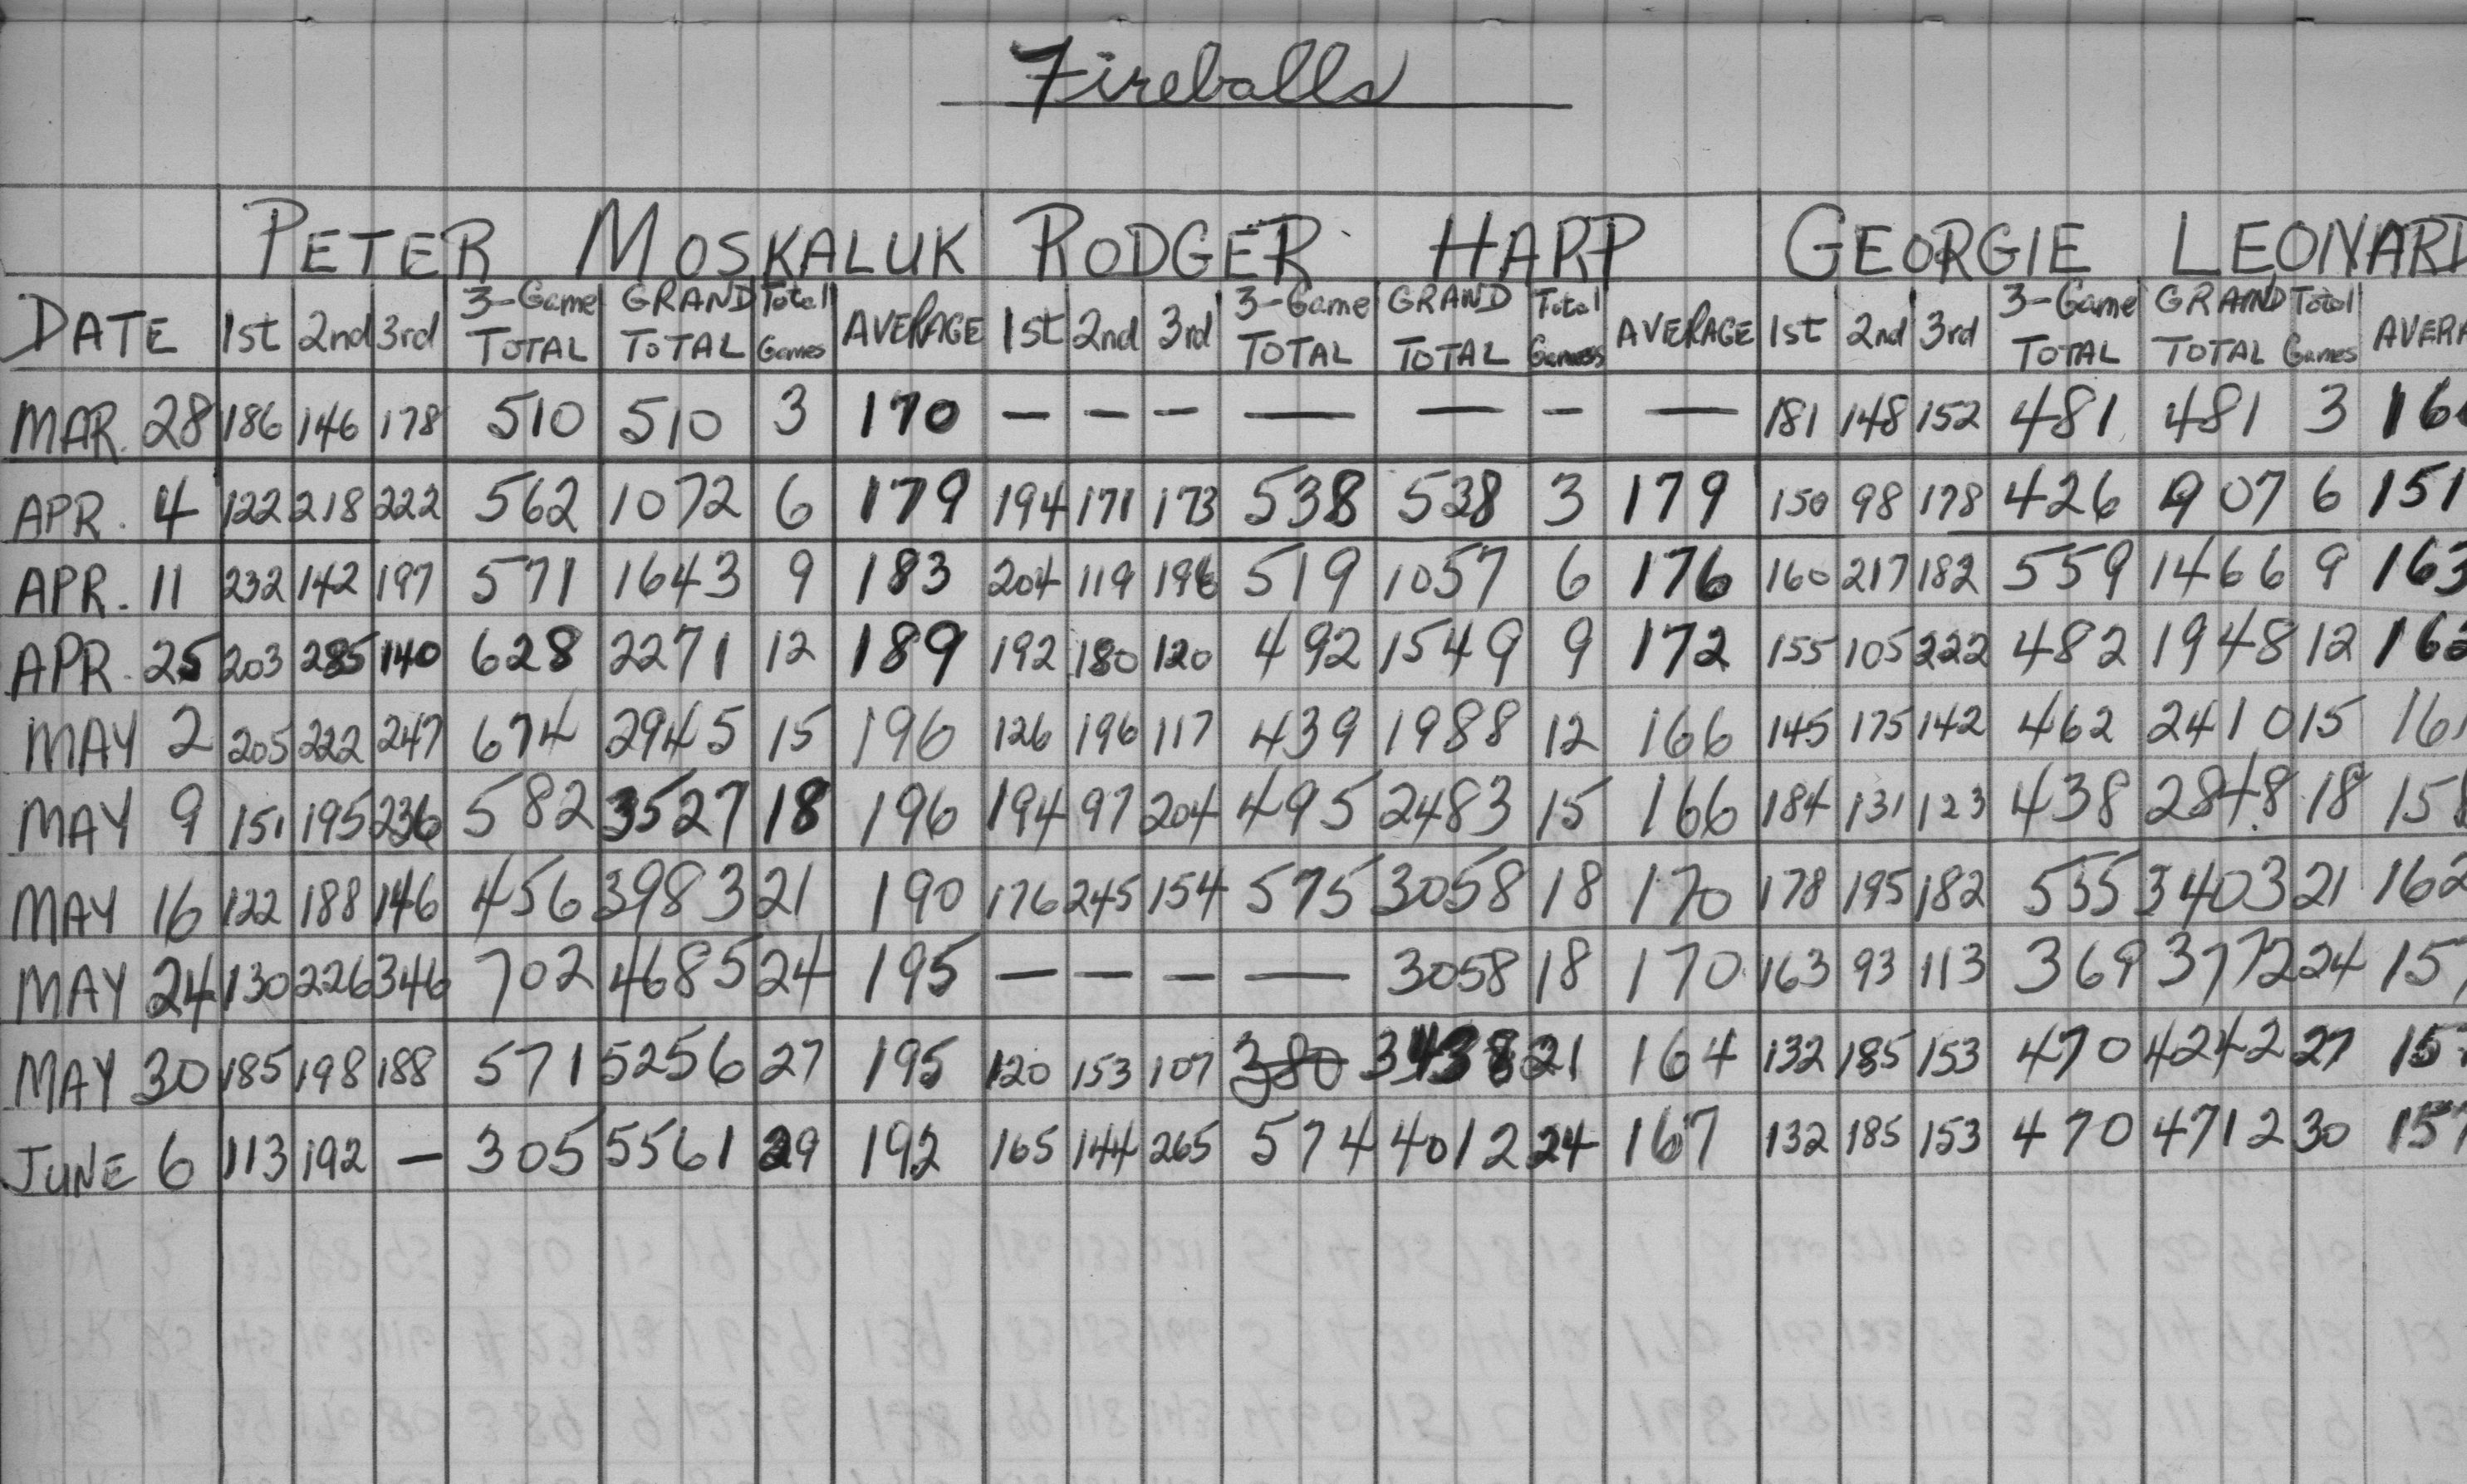 Fireballs
PETER MOSKALUK RODGER HARP GEORGIE LEONARD
DATE 1st 2nd 3rd 3-Game TOTAL GRAND TOTAL Total Games AVERAGE 1st 2nd 3rd 3-Game TOTAL GRAND TOTAL Total Games AVERAGE 1st 2nd 3rd 3-Game TOTAL GRAND TOTAL Total Games AVERA
MAR. 28 186 146 178 510 510 3 170 — — — — — — — 181 148 152 481 481 3 160
APR. 4 122 218 222 562 1072 6 179 194 171 173 538 538 3 179 150 98 178 426 907 6 151
APR. 11 232 142 197 571 1643 9 183 204 119 196 519 1057 6 176 160 217 182 559 1466 9 163
APR. 25 203 285 140 628 2271 12 189 192 180 120 492 1549 9 172 155 105 222 482 1948 12 162
MAY 2 205 222 247 674 2945 15 196 126 196 117 439 1988 12 166 145 175 142 462 2410 15 161
MAY 9 151 195 236 582 3527 18 196 194 97 204 495 2483 15 166 184 131 123 438 2848 18 158
MAY 16 122 188 146 456 3983 21 190 176 245 154 575 3058 18 170 178 195 182 555 3403 21 162
MAY 24 130 226 346 702 4685 24 195 — — — — 3058 18 170 163 93 113 369 3772 24 157
MAY 30 185 198 188 571 5256 27 195 120 153 107 380 3438 21 164 132 185 153 470 4242 27 157
JUNE 6 113 192 — 305 5561 29 192 165 144 265 574 4012 24 167 132 185 153 470 4712 30 157